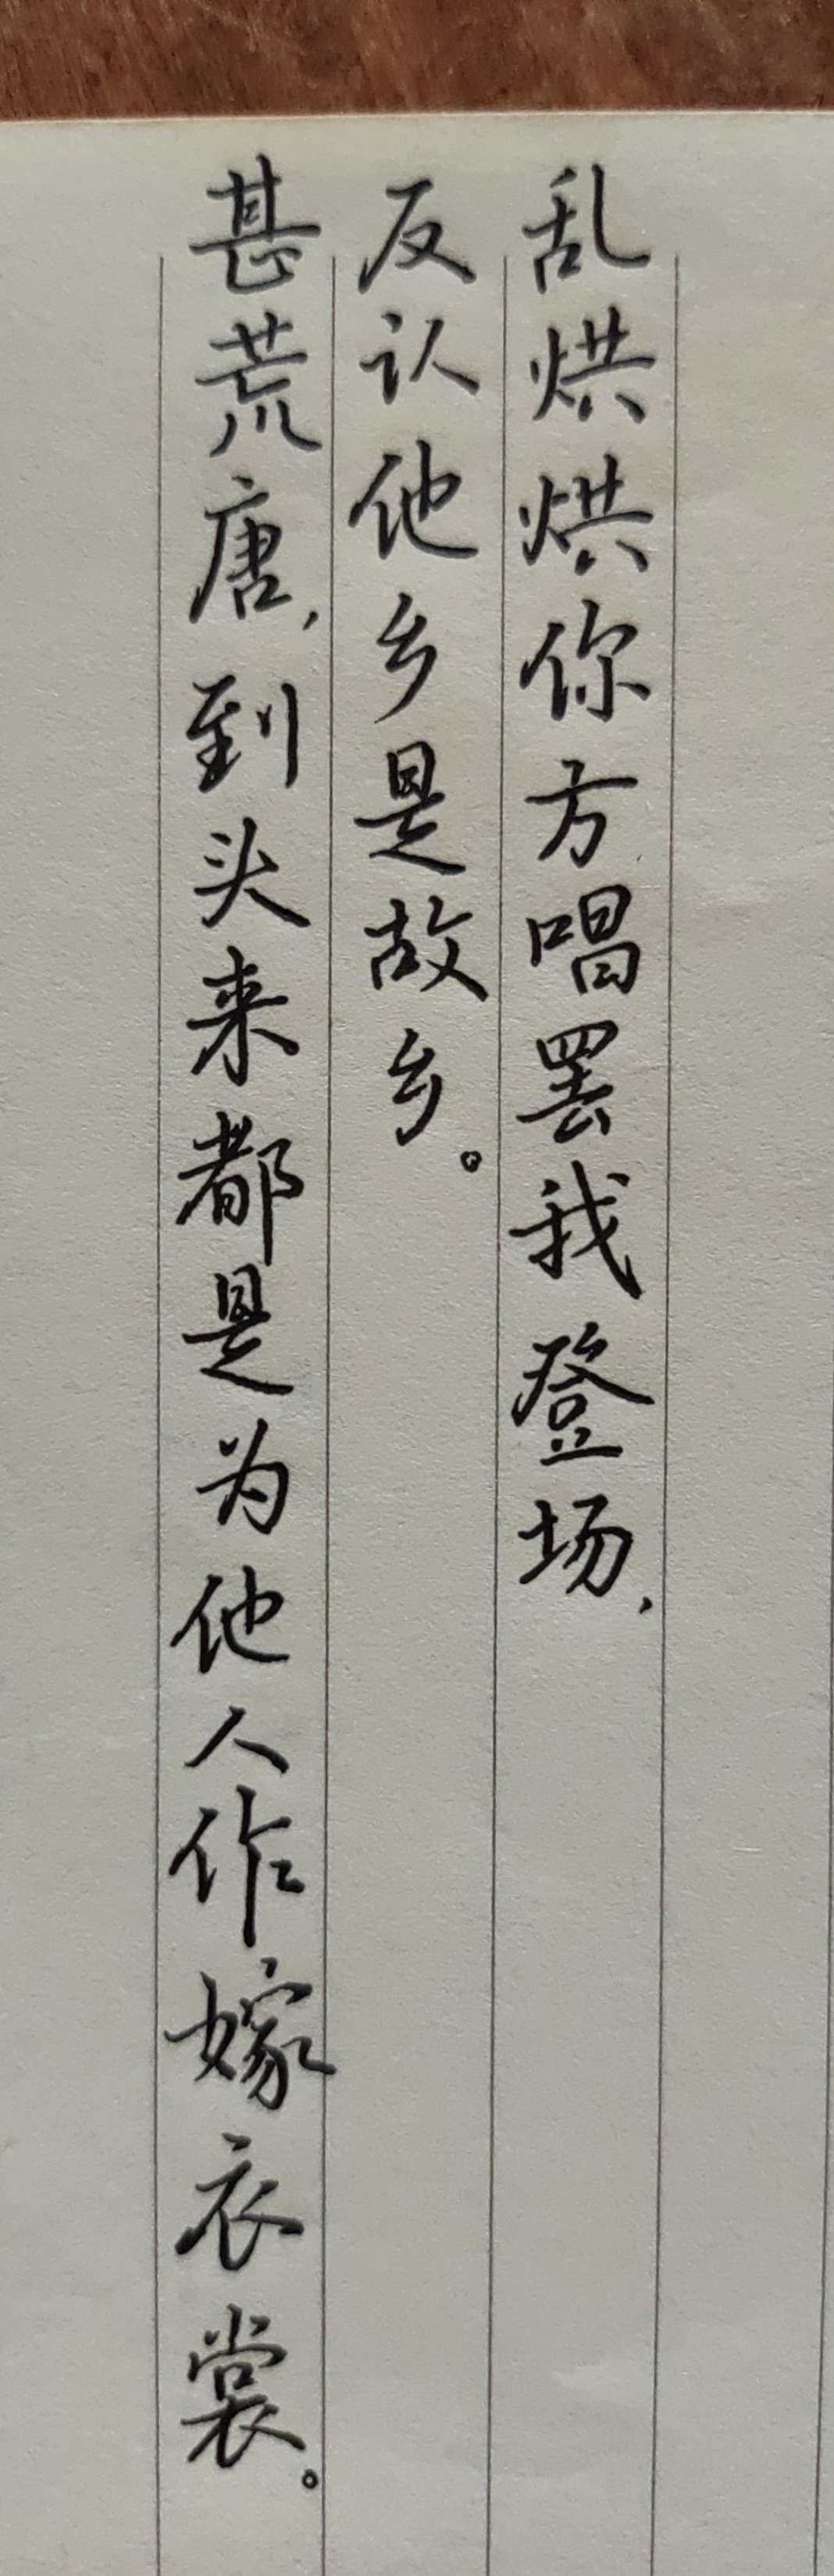 乱烘烘你方唱罢我登场，
反认他乡是故乡。
甚荒唐，到头来都是为他人作嫁衣裳。